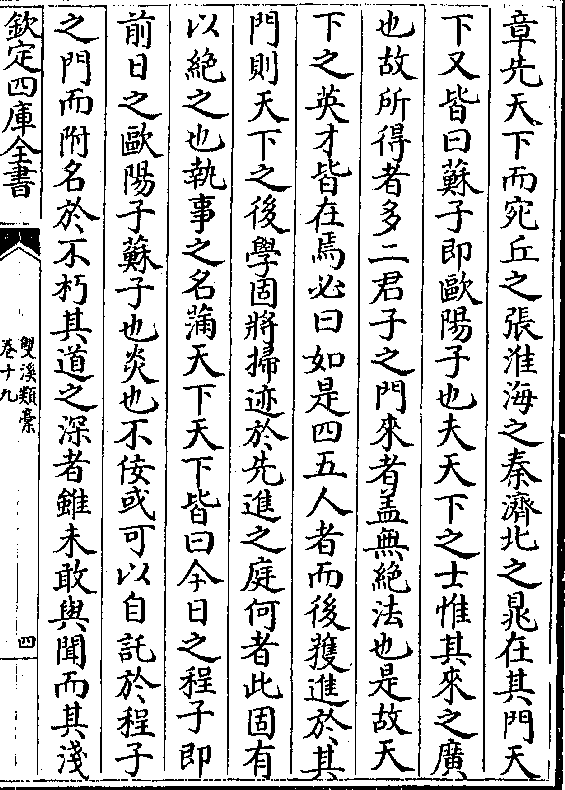 章先天下而宛丘之張淮海之秦濟北之晁在其門天
下又皆曰蘇子即歐陽子也夫天下之士惟其來之廣
也故所得者多二君子之門來者盖無絶法也是故天
下之英才皆在焉必曰如是四五人者而後獲進於其
門則天下之後學固將掃迹於先進之庭何者此固有
以絶之也執事之名滿天下天下皆曰今日之程子即
前日之歐陽子蘇子也炎也不佞或可以自託於程子
之門而附名於不朽其道之深者雖未敢與聞而其淺
欽定四庫全書
雙溪類稾
卷十九
四